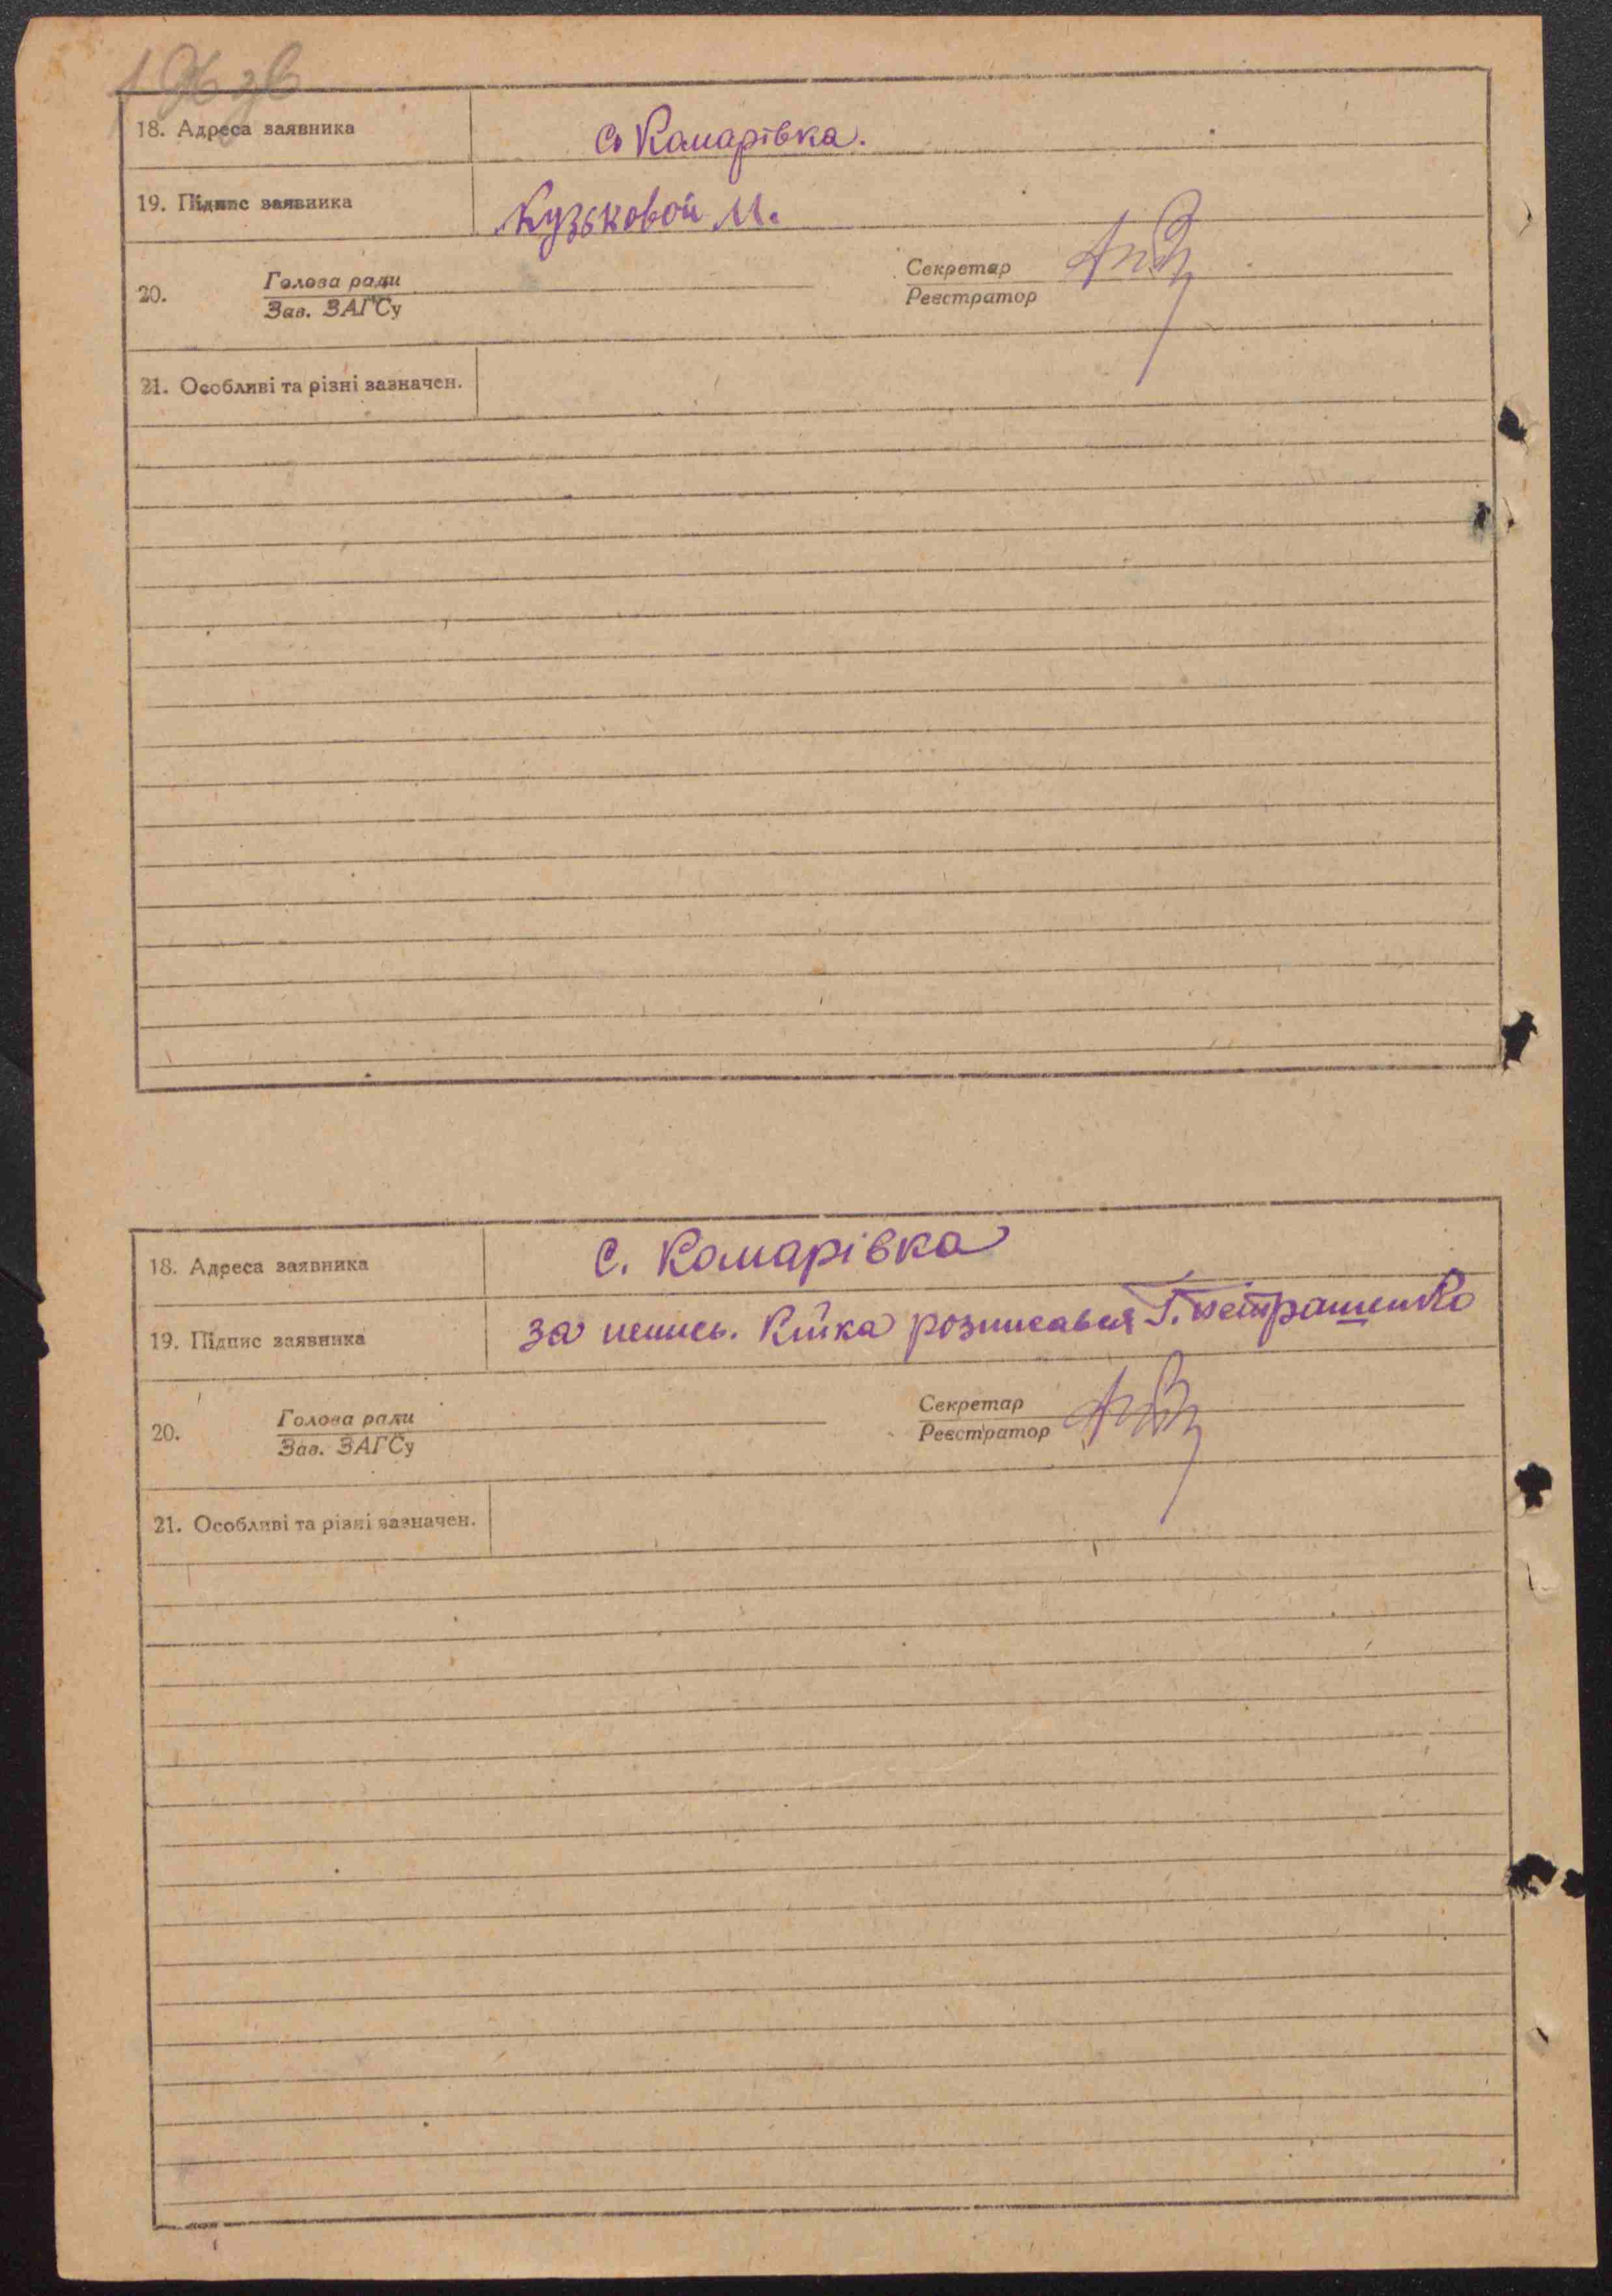 18. Адреса заявника с. Комарівка.
19. Підпис заявника Кузьковой М.
20. Голова ради Секретар
Зав. ЗАГСу Реєстратор
21. Особливі та різні зазначен.
18. Адреса заявника С. Комарівка
19. Підпис заявника за неписьм. розписався Г. Петрашенко
20. Голова ради Секретар
Зав. ЗАГСу Реєстратор
21. Особливі та різні зазначен.